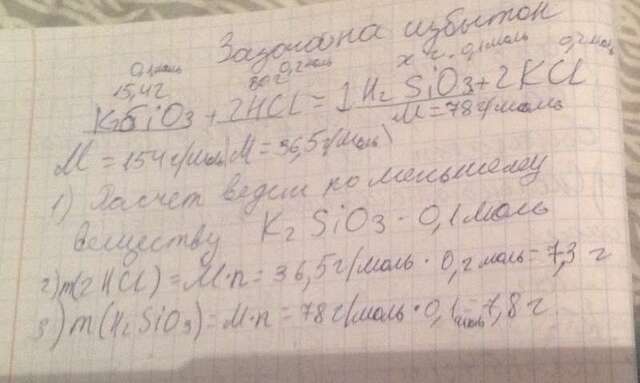 Задача на избыток
0,1моль 0,2моль x г. 0,1моль 0,2моль
15,4г
K2SiO3 + 2HCl = 1H2SiO3 + 2KCl
M = 154 г/моль M = 36,5 г/моль M = 78 г/моль
1) Расчет ведем по меньшему
веществу K2SiO3 - 0,1 моль
2) m(2HCl) = M·n = 36,5 г/моль · 0,2 моль = 7,3 г
3) m(H2SiO3) = M·n = 78 г/моль · 0,1 моль = 7,8 г.